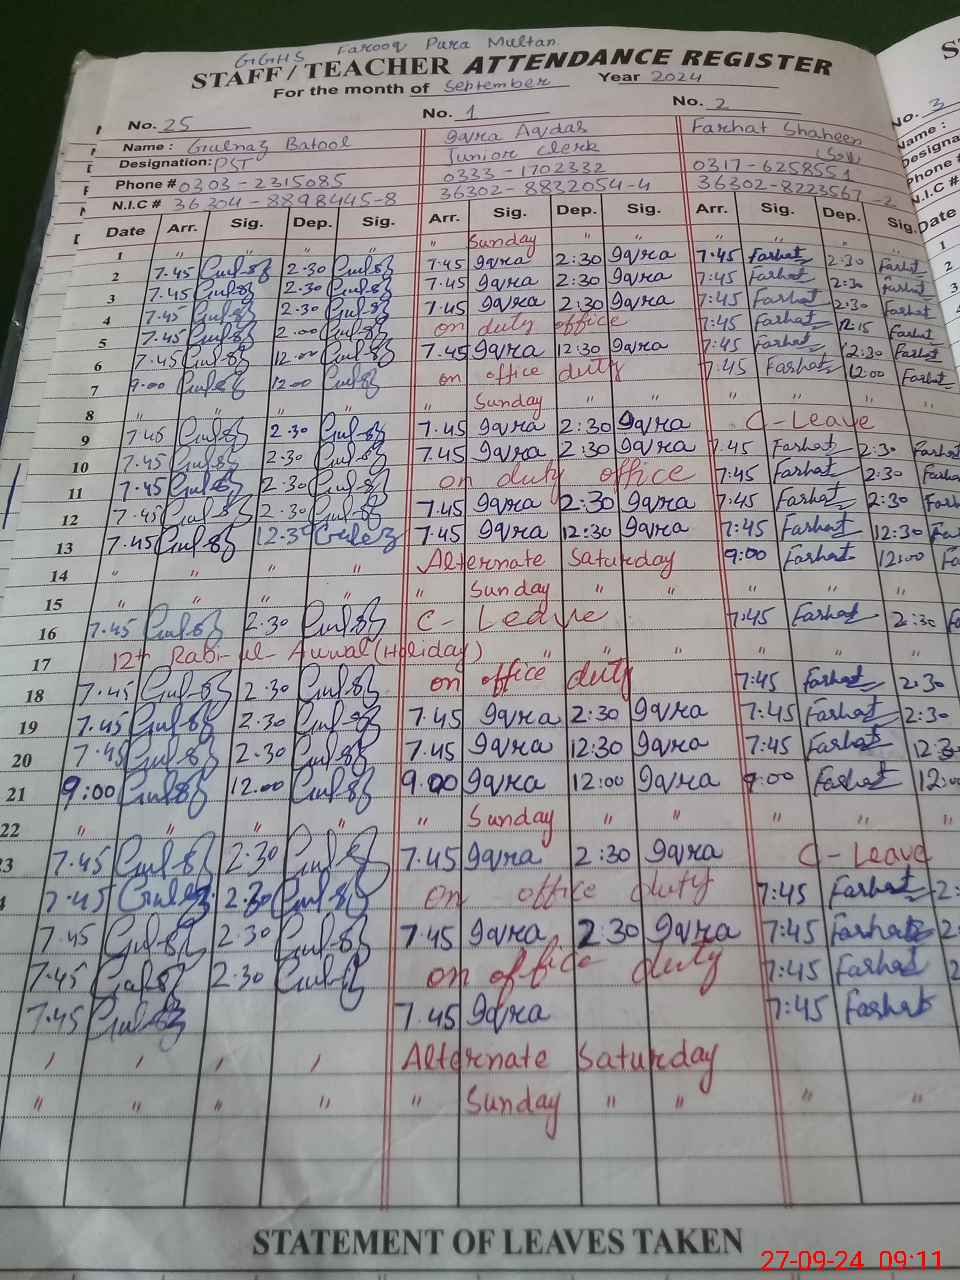 GGHS Farooq Pura Multan
STAFF/TEACHER ATTENDANCE REGISTER
For the month of September Year 2024
No. 25 No. 1 No. 2 No. 3
Name : Gulnaz Batool Iqra Aqdas Farhat Shaheen Name :
Designation: PST Junior Clerk
Phone # 0303-2315085 0333-1702332 0317-6258551 Phone #
N.I.C # 36304-8898445-8 36302-8832054-4 36302-8223567-2 N.I.C #
Date Arr. Sig. Dep. Sig. Arr. Sig. Dep. Sig. Arr. Sig. Dep. Sig. Date
1 " " " " " Sunday " " " " " 1
2 7.45 Gul 2.30 Gul 7.45 Iqra 2:30 Iqra 7.45 Farhat 2:30 Farhat 2
3 7.45 Gul 2.30 Gul 7.45 Iqra 2:30 Iqra 7:45 Farhat 2:30 Farhat 3
4 7.45 Gul 2.30 Gul 7.45 Iqra 2:30 Iqra 7:45 Farhat 2:30 Farhat 4
5 7.45 Gul 2.00 Gul on duty office 7:45 Farhat 12:15 Farhat 5
6 7.45 Gul 12.00 Gul 7.45 Iqra 12:30 Iqra 7:45 Farhat 12:30 Farhat
7 9.00 Gul 12.00 Gul on office duty 7:45 Farhat 12:00 Farhat
8 " " " " " Sunday " " " " " "
9 7.45 Gul 2.30 Gul 7.45 Iqra 2:30 Iqra C-Leave
10 7.45 Gul 2.30 Gul 7.45 Iqra 2:30 Iqra 7:45 Farhat 2:30 Farhat
11 7.45 Gul 2.30 Gul on duty office 7:45 Farhat 2:30 Farhat
12 7.45 Gul 2.30 Gul 7.45 Iqra 2:30 Iqra 7:45 Farhat 2:30 Farh
13 7.45 Gul 12.30 Gul 7.45 Iqra 12:30 Iqra 7:45 Farhat 12:30 Fa
14 " " " " Alternate Saturday 9:00 Farhat 12:00 Fa
15 " " " " " Sunday " " " " "
16 7.45 Gul 2.30 Gul C-Leave 7:45 Farhat 2:30 F
17 12th Rabi-ul-Awwal (Holiday) " " " " " "
18 7.45 Gul 2.30 Gul on office duty 7:45 Farhat 2:30
19 7.45 Gul 2.30 Gul 7.45 Iqra 2:30 Iqra 7:45 Farhat 2:30
20 7.45 Gul 2.30 Gul 7.45 Iqra 12:30 Iqra 7:45 Farhat 12:3
21 9:00 Gul 12.00 Gul 9.00 Iqra 12:00 Iqra 9:00 Farhat 12:0
22 " " " " " Sunday " " " " "
23 7.45 Gul 2.30 Gul 7.45 Iqra 2:30 Iqra C-Leave
4 7.45 Gul 2.30 Gul on office duty 7:45 Farhat 2:
7.45 Gul 2.30 Gul 7.45 Iqra 2:30 Iqra 7:45 Farhat 2:
7.45 Gul 2.30 Gul on office duty 7:45 Farhat 2
7.45 Gul 7.45 Iqra 7:45 Farhat
Alternate Saturday
" " " " " Sunday " " " "
STATEMENT OF LEAVES TAKEN
27-09-24 09:11